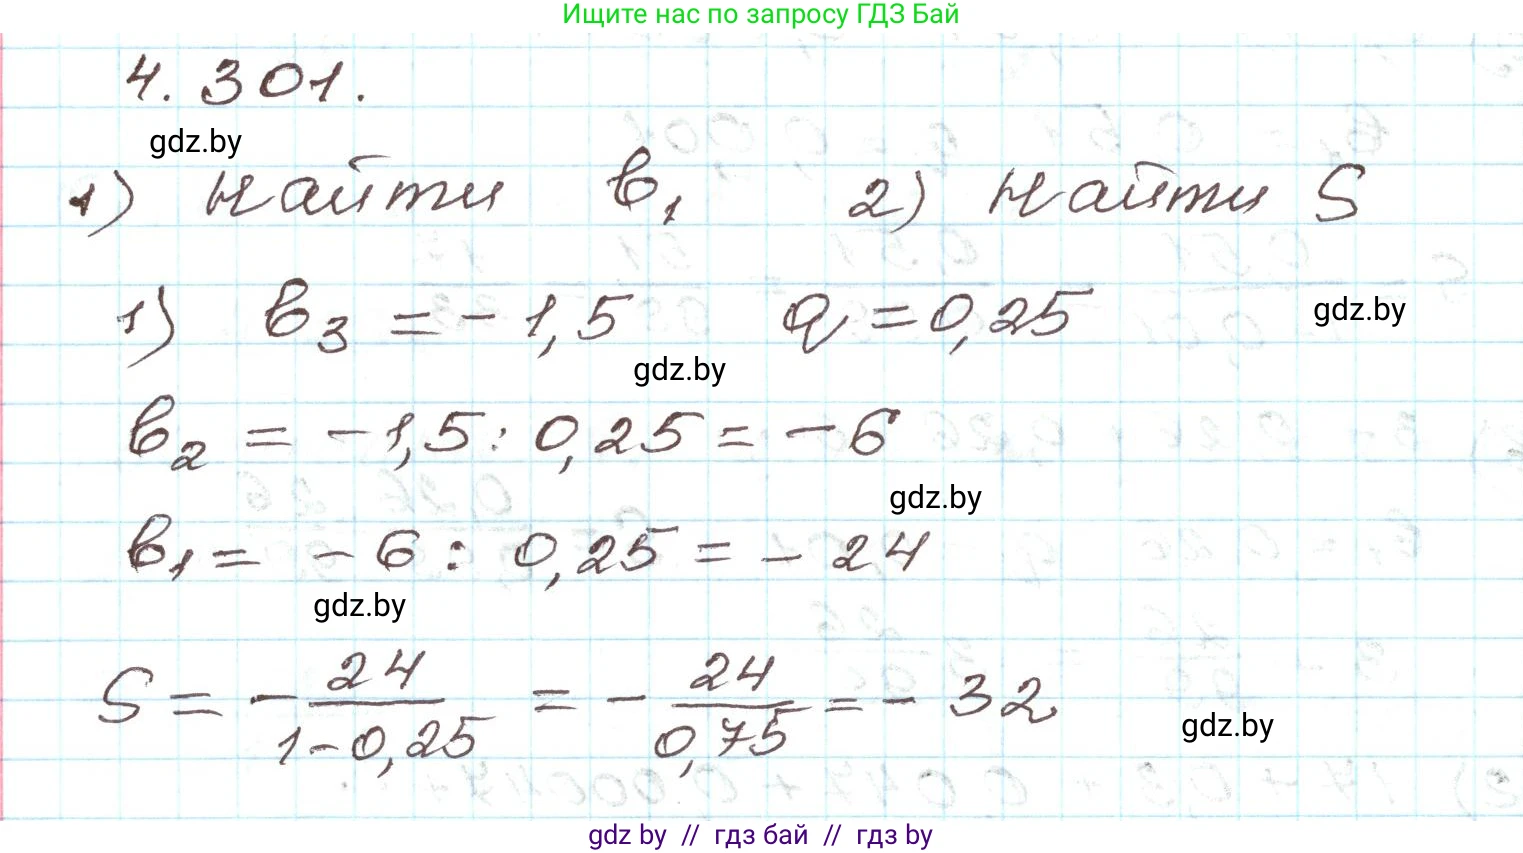 Ищите нас по запросу ГДЗ Бай
4.301.
gdz.by
1) найти b₁ 2) найти S
1) b₃ = - 1,5 q = 0,25
gdz.by
gdz.by
b₂ = - 1,5 : 0,25 = - 6
gdz.by
b₁ = - 6 : 0,25 = - 24
gdz.by
S = - 24/(1-0,25) = - 24/0,75 = - 32
gdz.by
gdz by // гдз бай // гдз by